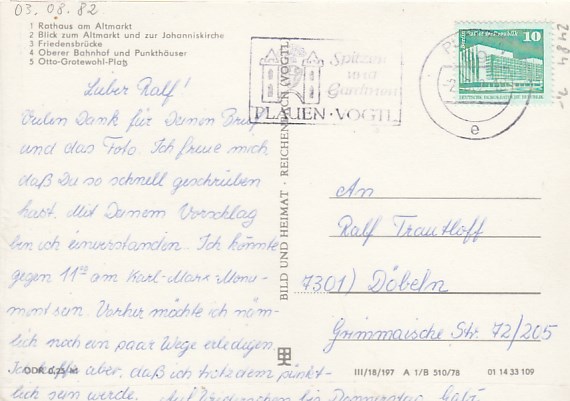 03.08.82
1 Rathaus am Altmarkt
2 Blick zum Altmarkt und zur Johanniskirche
3 Friedensbrücke
4 Oberer Bahnhof und Punkthäuser
5 Otto-Grotewohl-Platz
Lieber Ralf!
Vielen Dank für Deinen Brief
und das Foto. Ich freue mich
daß Du so schnell geschrieben
hast. Mit Deinem Vorschlag
bin ich einverstanden. Ich könnte
gegen 11 am Karl-Marx-Monu-
ment sein. Vorher möchte ich näm-
lich noch ein paar Wege erledigen.
Ich hoffe aber, daß ich trotzdem pünkt-
lich sein werde. Auf Wiedersehen bis Donnerstag Gabi
BILD UND HEIMAT · REICHENBACH (VOGTL)
Spitzen
und
Gardinen
PLAUEN · VOGTL
e
10
DEUTSCHE DEMOKRATISCHE REPUBLIK
2484
An
Ralf Trautloff
7301) Döbeln
Grimmaische Str. 72/205
III/18/197 A 1/B 510/78 01 14 33 109